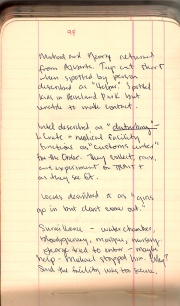 98
Michael and Henry returned
from Alberta. Trip cut short
when spotted by person
described as "Helen". Spotted
kids in Kensland Park but
unable to make contact.
Intel described as "disturbing" -
Liwate = medical facility
functions as "customs center"
for the Order. They collect, and
experiment on
as they see fit.
Locals described it as "guns
go in but don't come out."
Surveillance - water chamber,
bloodpenny, morgue, nursery.
George tried to enter - maybe
help - Michael stopped him.
Said the facility was too secure.